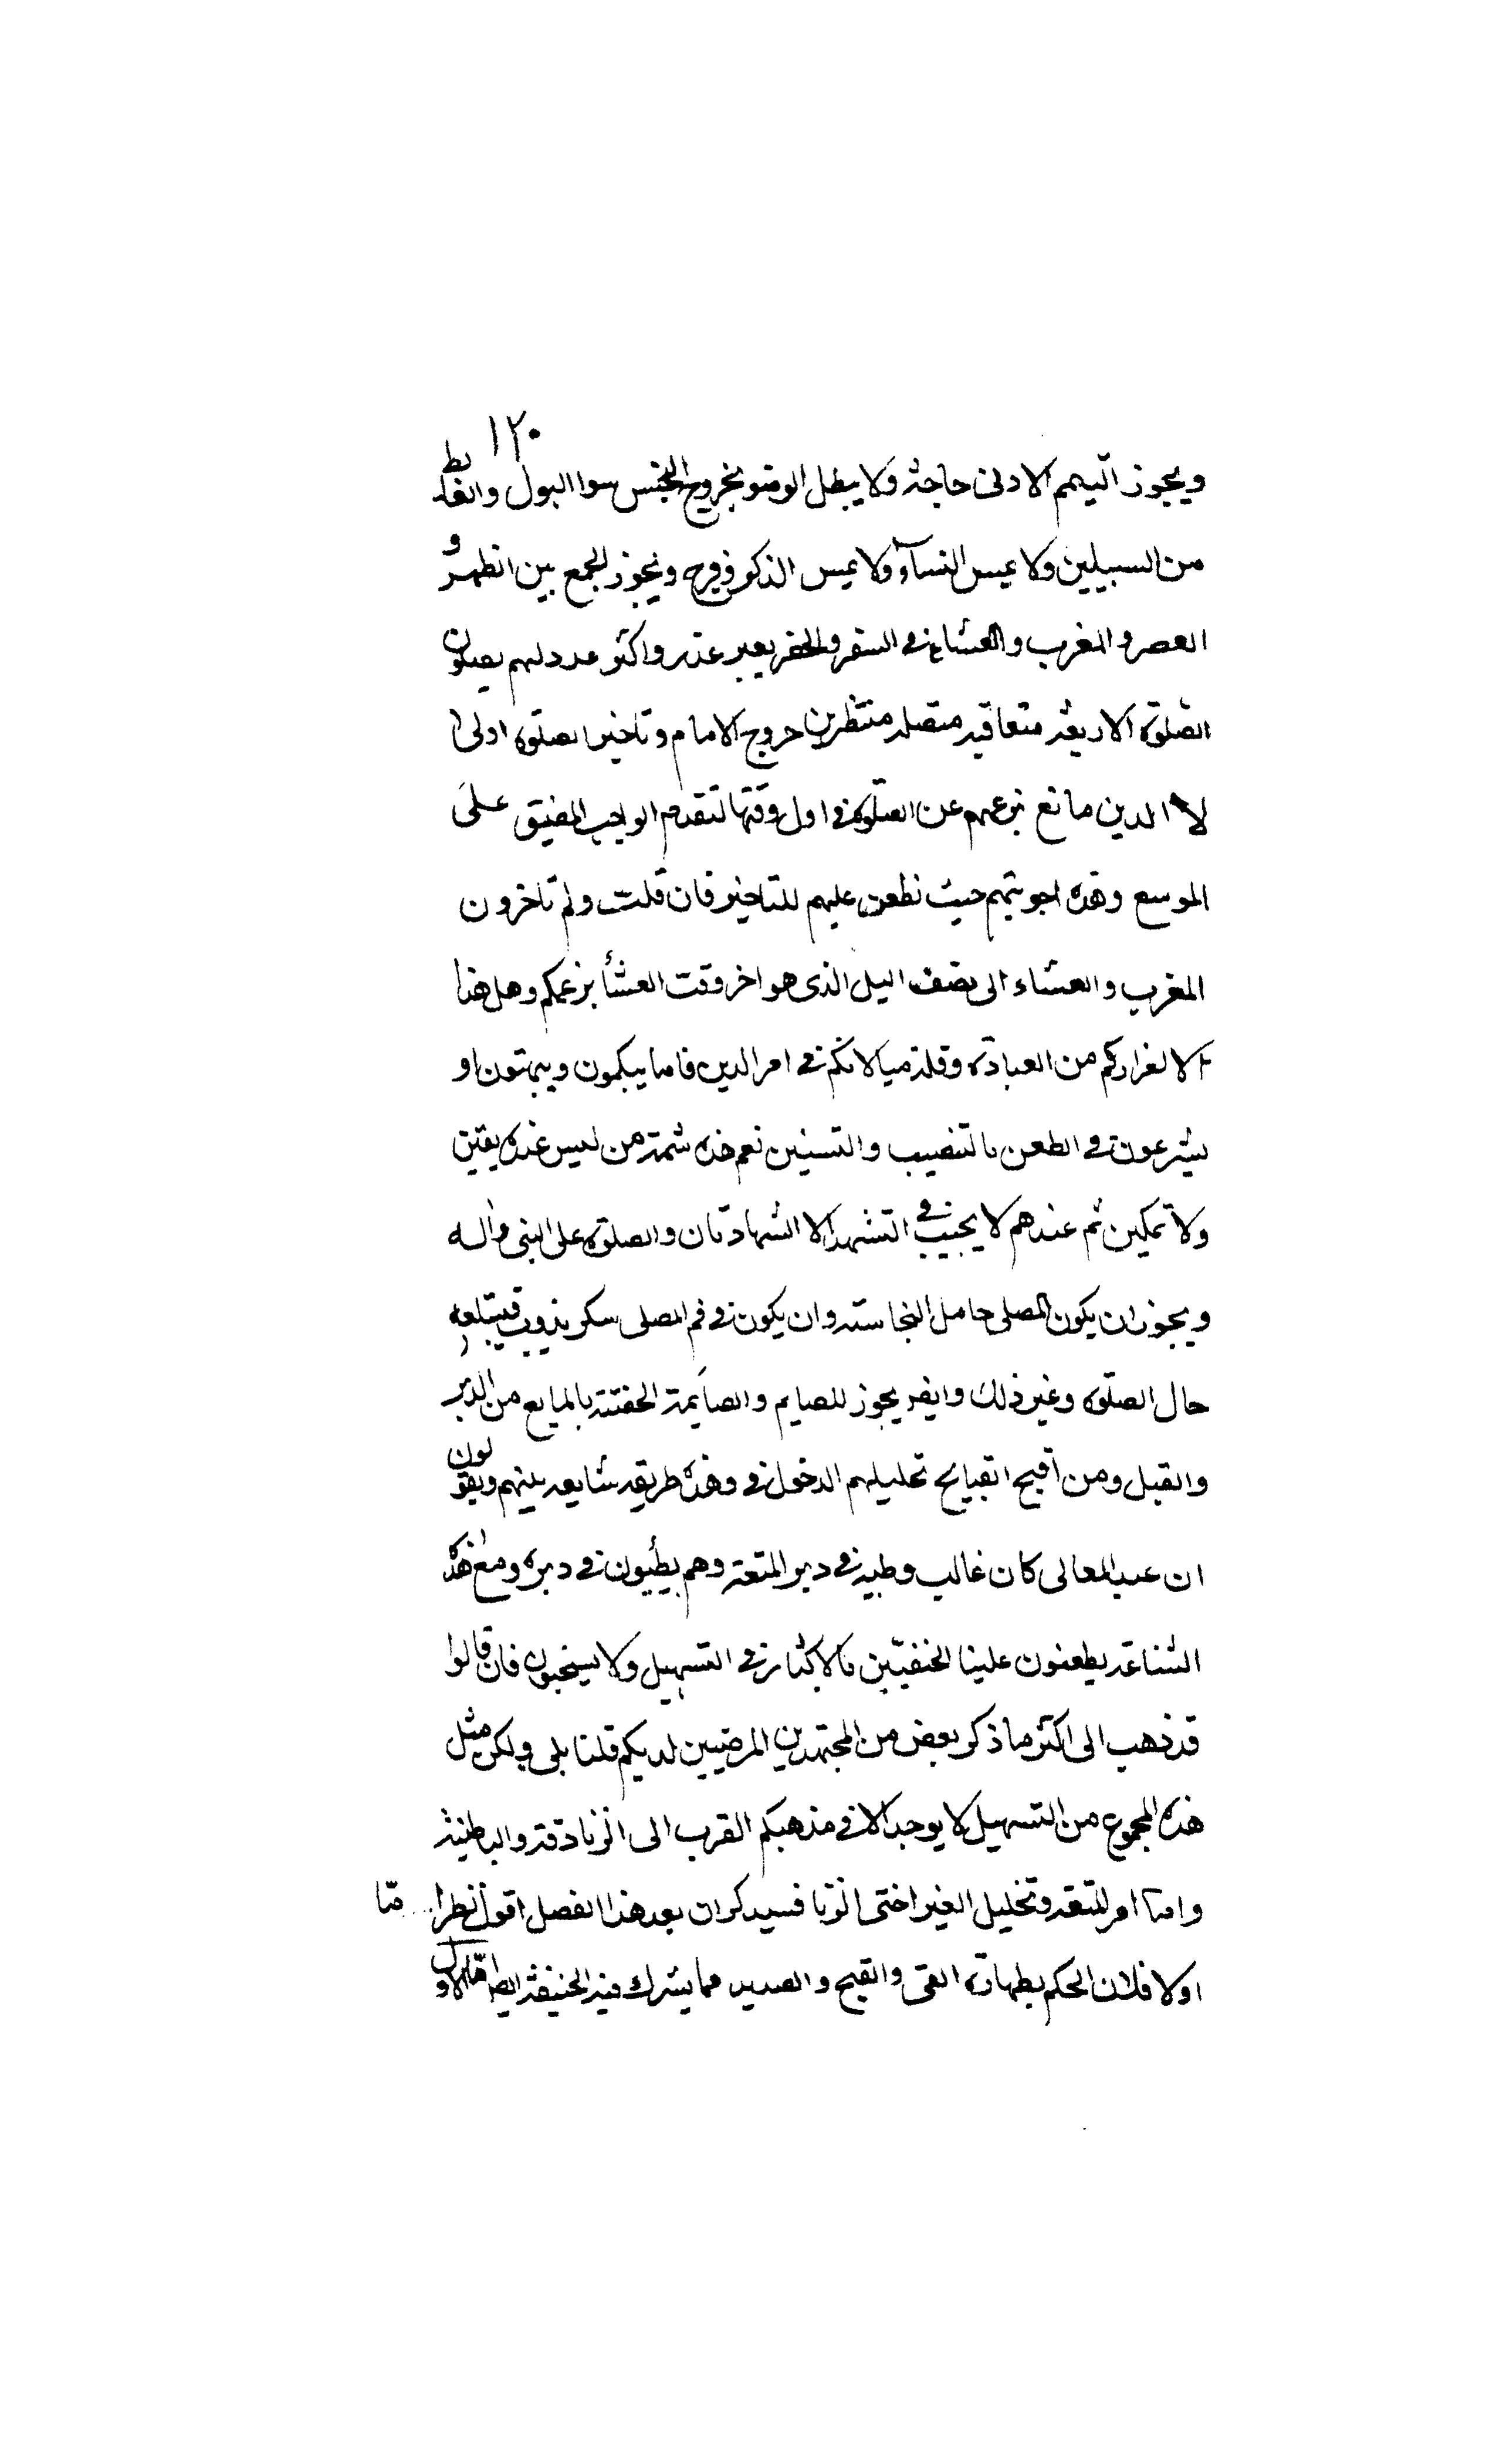 ١٢٠
ويجوز التيمم لادنى حاجة ولا يبطل الوضو بخروج النجس سوا البول والغايط
من السبيلين ولا بمس النسآء ولا بمس الذكر وفرج ويجوز الجمع بين الظهر و
العصر والمغرب والعشاء في السفر والحضر بغير عذر واكثر عددلهم يصلون
الصلوة الاربعة متعاقبة متصلة منتظرين خروج الامام وتاخير الصلوة اولى
لا الدين مانع بزعمهم عن الصلوة في اول وقتها لتقدم الواجب المضيق على
الموسع وهذه اجوبتهم حيث نطعن عليهم للتاخير فان قلت ولم تاخرون
المغرب والعشاء الى نصف اليل الذى هو اخر وقت العشأ بزعمكم وهل هذا
الا لفراركم من العبادة وقلة مبالاتكم في امر الدين فاما يبكمون ويبهتون او
يشرعون في الطعن بالتنصيب والتسنين نعم هذه شمة من ليس عنده يقين
ولا تمكين ثم عندهم لا يجب في التشهد الا الشهادتان والصلوة على النبى واله
ويجوز ان يكون المصلى حامل النجاسة وان يكون في فم المصلى سكر يذوب فيبتلعه
حال الصلوة وغير ذلك وايضا يجوز للصايم والصايمة الحقنة بالمايع من الدبر
والقبل ومن اقبح القبايح تحليلهم الدخول في وهذه طريقة شايعة بينهم ويقولون
ان عبد المعالى كان غالب وطيه في دبر المتعة وهم يطئون في دبره ومع هذه
الشناعة يطعنون علينا الحنفيين بالاكثار في التسهيل ولا يستحيون فان قالوا
قد ذهب الى اكثر ما ذكر بعض من المجتهدين المرضيين لديكم قلنا بلى ولكن مثل
هذه المجموع من التسهيل لا يوجد الا في مذهبكم القرب الى الزنادقة والباطنية
واما امر المتعة وتحليل الغير اختى الزنا فسيذكران بعد هذا الفصل اقول انظرا
اولا فلان الحكم بطهارة القى والقيح والصديد مما يشرك فيه الحنيفة ايضا